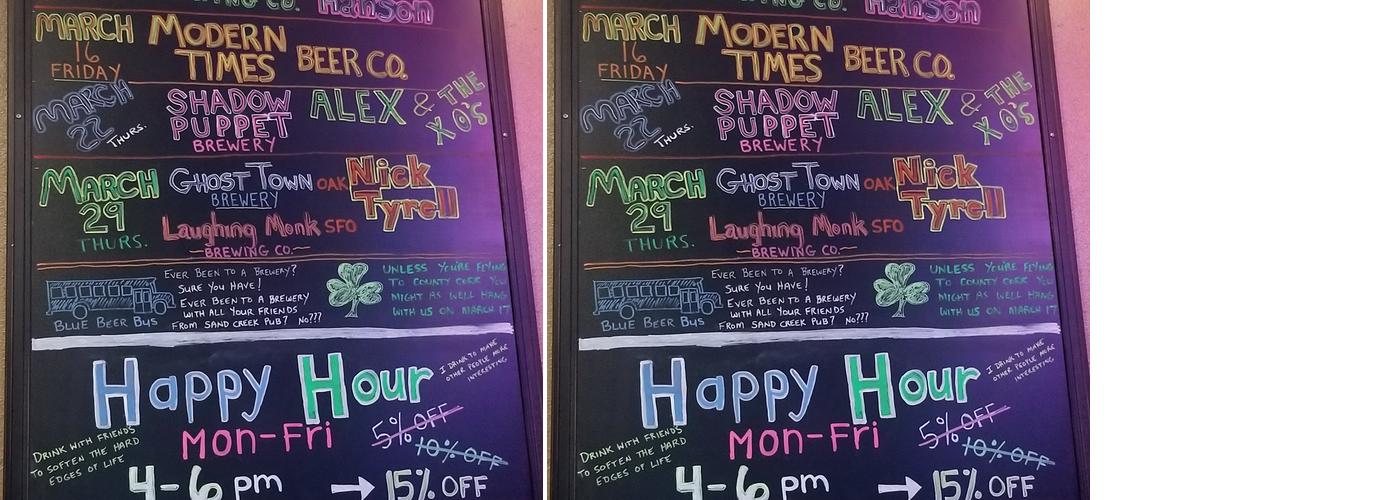 CO. Hanson
MARCH 16 FRIDAY MODERN TIMES BEER CO.
MARCH 22 THURS. SHADOW PUPPET BREWERY ALEX & THE XO'S
MARCH 29 THURS. GHOST TOWN BREWERY OAK Nick Tyrell
Laughing Monk SFO
BREWING CO.
BLUE BEER BUS
EVER BEEN TO A BREWERY?
SURE YOU HAVE!
EVER BEEN TO A BREWERY
WITH ALL YOUR FRIENDS
FROM SAND CREEK PUB? NO???
UNLESS YOU'RE FLYING
TO COUNTY CORK YOU
MIGHT AS WELL HANG
WITH US ON MARCH 17
Happy Hour
I DRINK TO MAKE
OTHER PEOPLE MORE
INTERESTING
MON-FRI
5% OFF
10% OFF
DRINK WITH FRIENDS
TO SOFTEN THE HARD
EDGES OF LIFE
4-6 pm → 15% OFF
CO. Hanson
MARCH 16 FRIDAY MODERN TIMES BEER CO.
MARCH 22 THURS. SHADOW PUPPET BREWERY ALEX & THE XO'S
MARCH 29 THURS. GHOST TOWN BREWERY OAK Nick Tyrell
Laughing Monk SFO
BREWING CO.
BLUE BEER BUS
EVER BEEN TO A BREWERY?
SURE YOU HAVE!
EVER BEEN TO A BREWERY
WITH ALL YOUR FRIENDS
FROM SAND CREEK PUB? NO???
UNLESS YOU'RE FLYING
TO COUNTY CORK YOU
MIGHT AS WELL HANG
WITH US ON MARCH 17
Happy Hour
I DRINK TO MAKE
OTHER PEOPLE MORE
INTERESTING
MON-FRI
5% OFF
10% OFF
DRINK WITH FRIENDS
TO SOFTEN THE HARD
EDGES OF LIFE
4-6 pm → 15% OFF